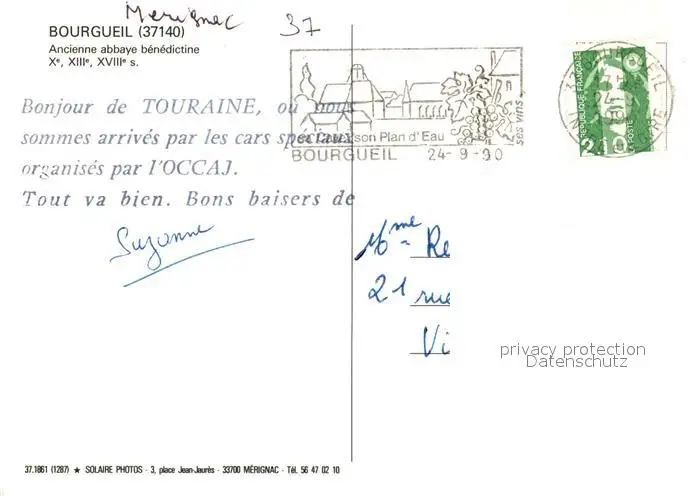 Merignac
37
BOURGUEIL (37140)
Ancienne abbaye bénédictine
Xe, XIIIe, XVIIIe s.
Bonjour de TOURAINE, où nous
sommes arrivés par les cars spéciaux
organisés par l'OCCAJ.
Tout va bien. Bons baisers de
Suzanne
ses vins
son Plan d'Eau
BOURGUEIL 24-9-90
REPUBLIQUE FRANÇAISE
LA POSTE
2,10
Mme Re
21 rue
Vi
privacy protection
Datenschutz
37.1861 (1287) ★ SOLAIRE PHOTOS - 3, place Jean-Jaurès - 33700 MÉRIGNAC - Tél. 56 47 02 10